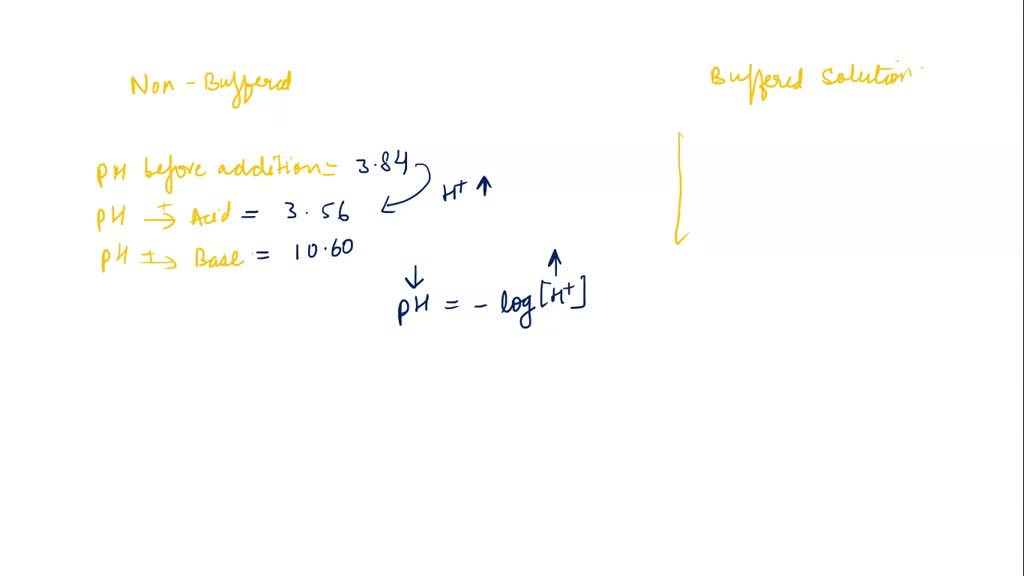 Non-Buffered
Buffered Solution
pH before addition = 3.84
H+ ↑
pH +→ Acid = 3.56
pH +→ Base = 10.60
↓ ↑
pH = - log [H+]